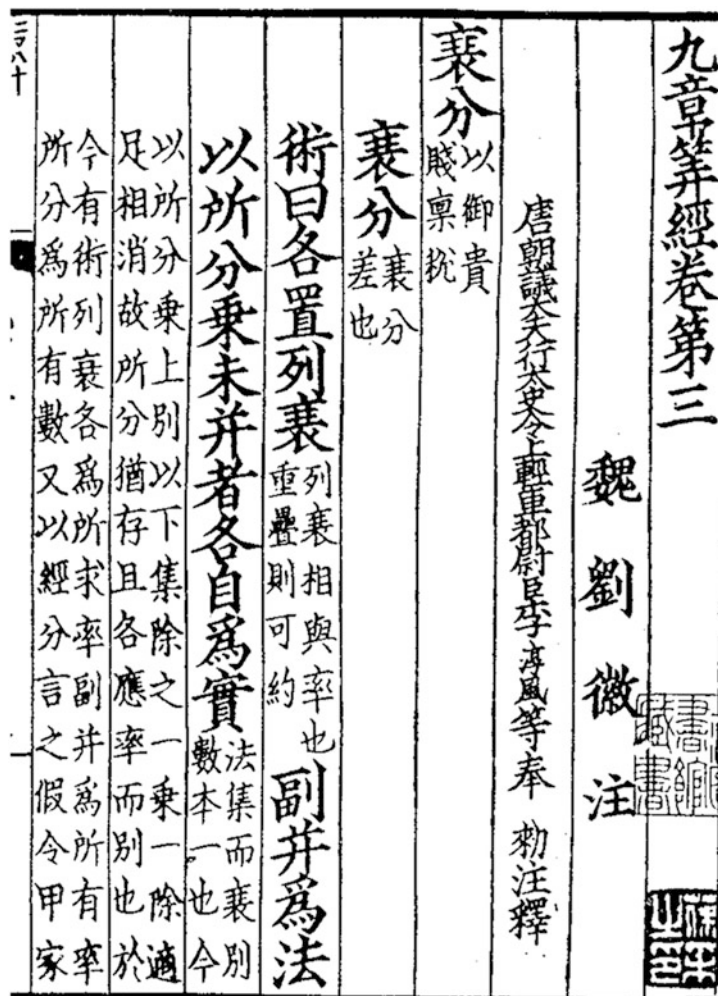 九章筭經卷第三
魏劉徽注
唐朝議大夫行太史令上輕車都尉臣李淳風等奉 勑注釋
衰分以御貴賤禀稅
衰分衰分差也
術曰各置列衰列衰相與率也重疊則可約副并爲法
以所分乗未并者各自爲實法集而衰別數本一也今
以所分乗上別以下集除之一乗一除適
足相消故所分猶存且各應率而別也於
今有術列衰各爲所求率副并爲所有率
所分爲所有數又以經分言之假令甲家